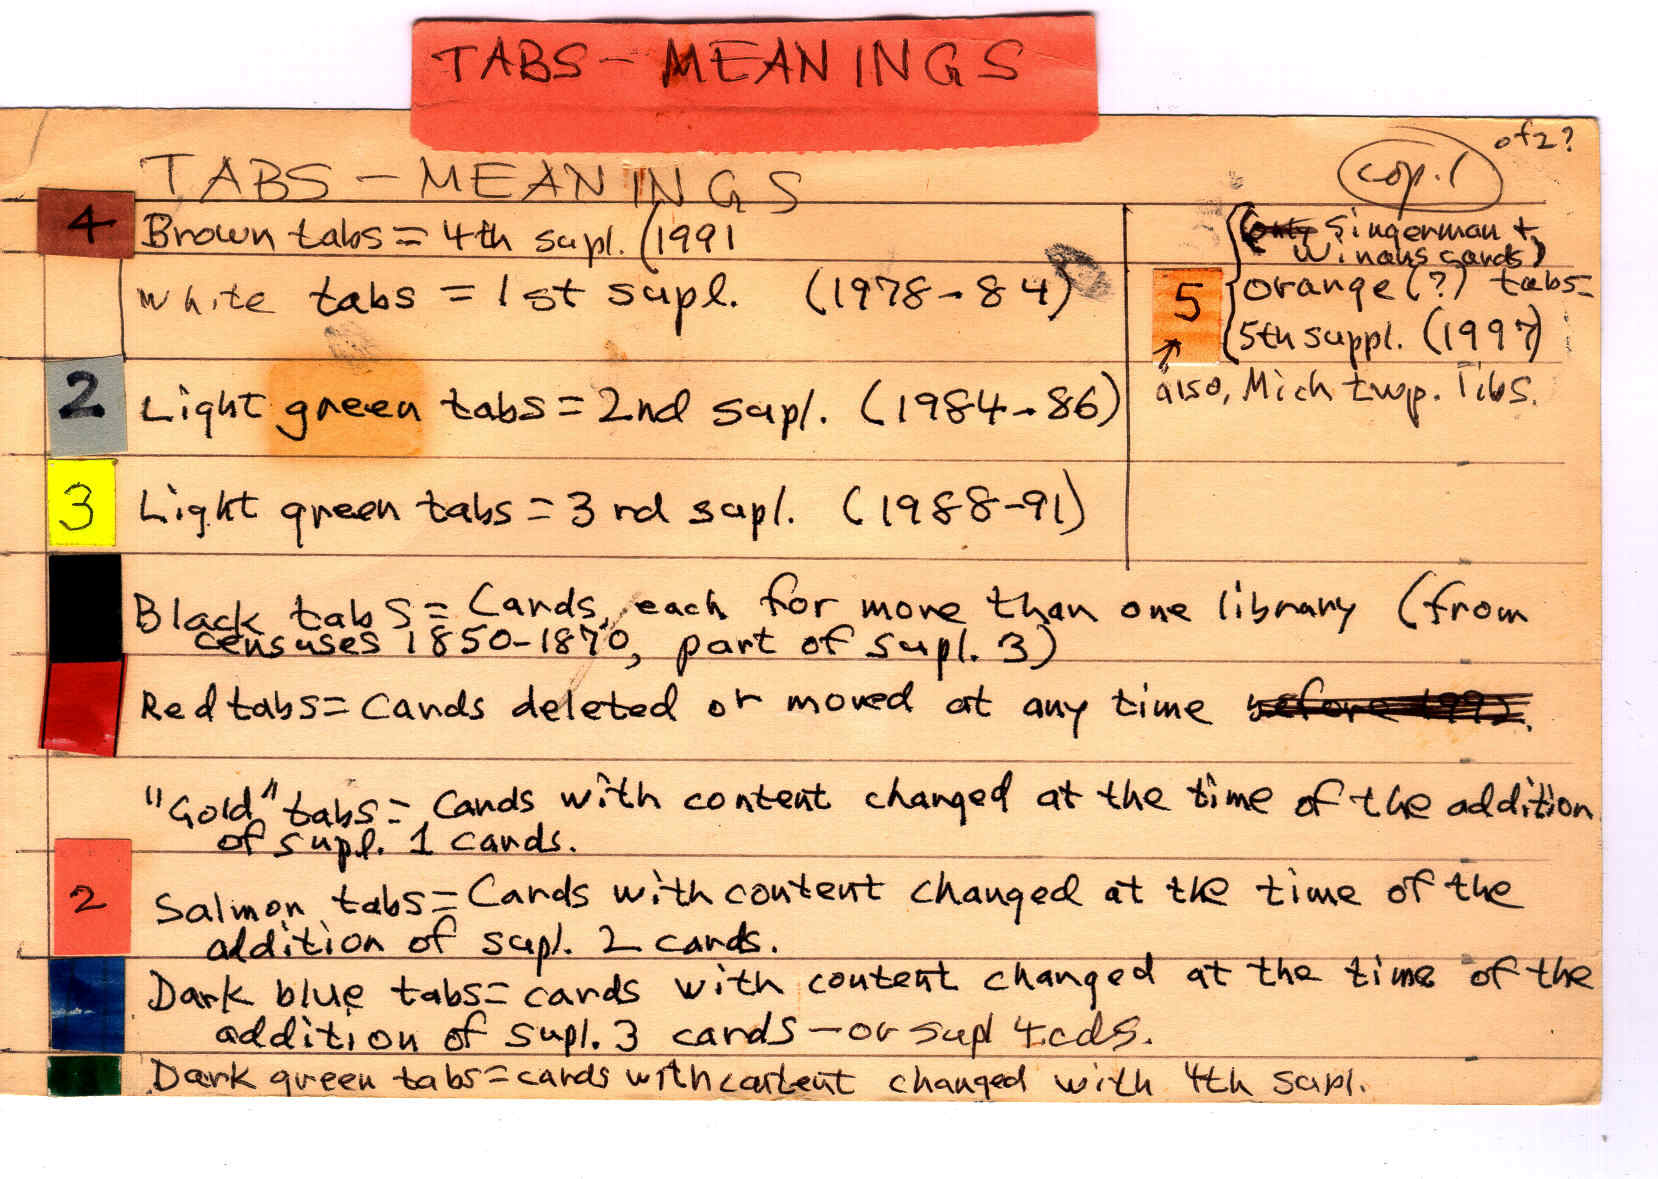 TABS - MEANINGS
of 2?
cop. 1
TABS - MEANINGS
4 Brown tabs = 4th supl. (1991
White tabs = 1st supl. (1978-84)
2 Light green tabs = 2nd supl. (1984-86)
3 Light green tabs = 3rd supl. (1988-91)
(only Singerman +
Winans cards)
5 orange (?) tabs =
5th suppl. (1997)
also, Mich twp. libs.
Black tabs = Cards, each for more than one library (from
censuses 1850-1870, part of supl. 3)
Red tabs = Cards deleted or moved at any time before 1992.
"Gold" tabs = Cards with content changed at the time of the addition
of supl. 1 cards.
2 Salmon tabs = Cards with content changed at the time of the
addition of supl. 2 cards.
Dark blue tabs = cards with content changed at the time of the
addition of supl. 3 cards - or supl 4 cds.
Dark green tabs = cards with content changed with 4th supl.